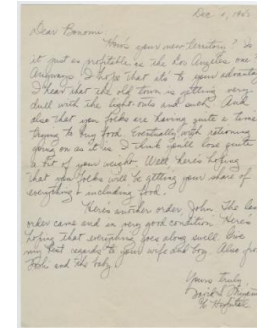 Dec. 9, 1942
Dear Bonomi:
How's your new territory? Is
it just as profitable as the Los Angeles one?
Anyway I hope that it's to your advantage
I hear that the old town is getting very
dull with the light-outs and such. And
also that you folks are having quite a time
trying to buy food. Eventually with rationing
going on as it is I think you'll lose quite
a bit of your weight. Well here's hoping
that you folks will be getting your share of
everything & including food.
Here's another order, John. The last
order came and in very good condition. Here's
hoping that everything goes along swell. Give
my best regards to your wife and boy. Also from
and the baby.
Yours truly
% Hospital